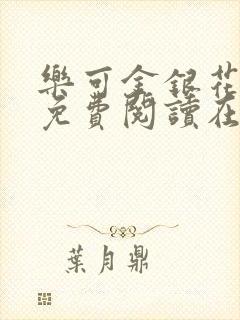 樂可金銀花
免費閱讀在
葉月鼎